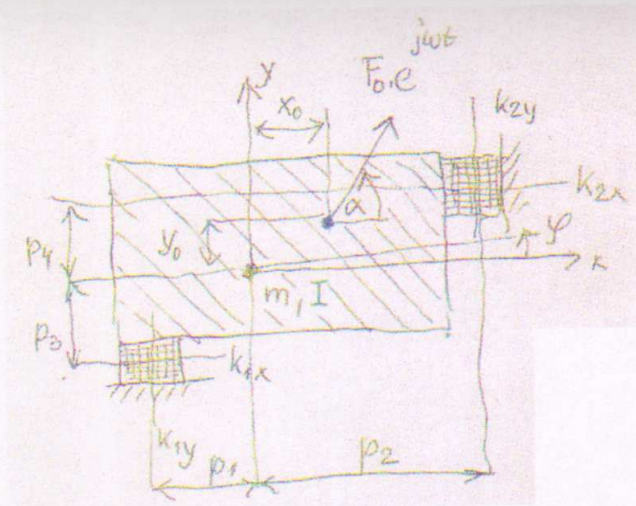 F₀.e^jωt
y
x₀
k2y
k2x
α
p4
y₀
φ
x
m, I
p3
k1x
k1y
p1
p2